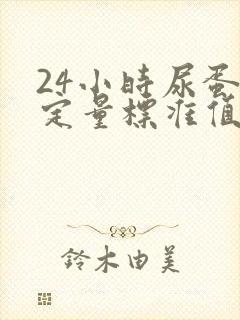 24小時尿蛋
定量標准值
鈴木由美